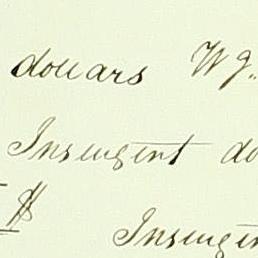 dollars Wg.
Insurgent do
$
Insurgen